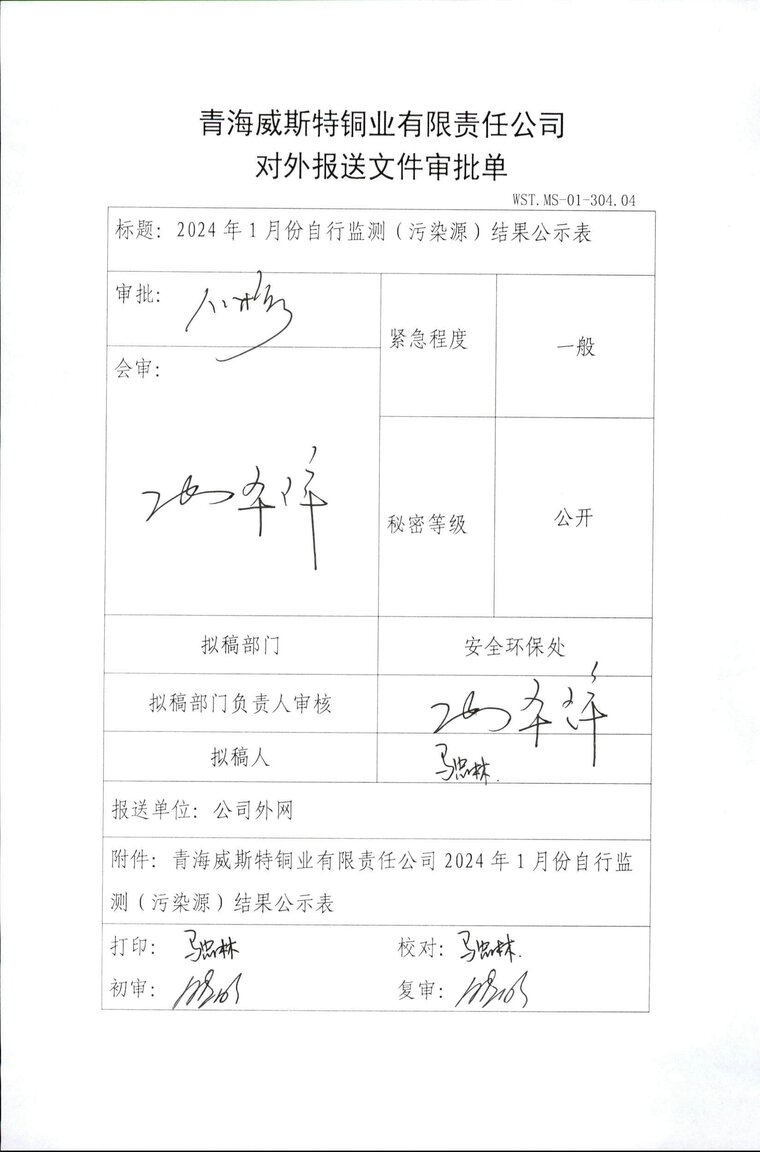 青海威斯特铜业有限责任公司
对外报送文件审批单
WST.MS-01-304.04
标题：2024年1月份自行监测（污染源）结果公示表
审批：
紧急程度
一般
会审：
秘密等级
公开
拟稿部门
安全环保处
拟稿部门负责人审核
拟稿人
马忠林
报送单位：公司外网
附件：青海威斯特铜业有限责任公司2024年1月份自行监
测（污染源）结果公示表
打印：马忠林 校对：马忠林
初审： 复审：